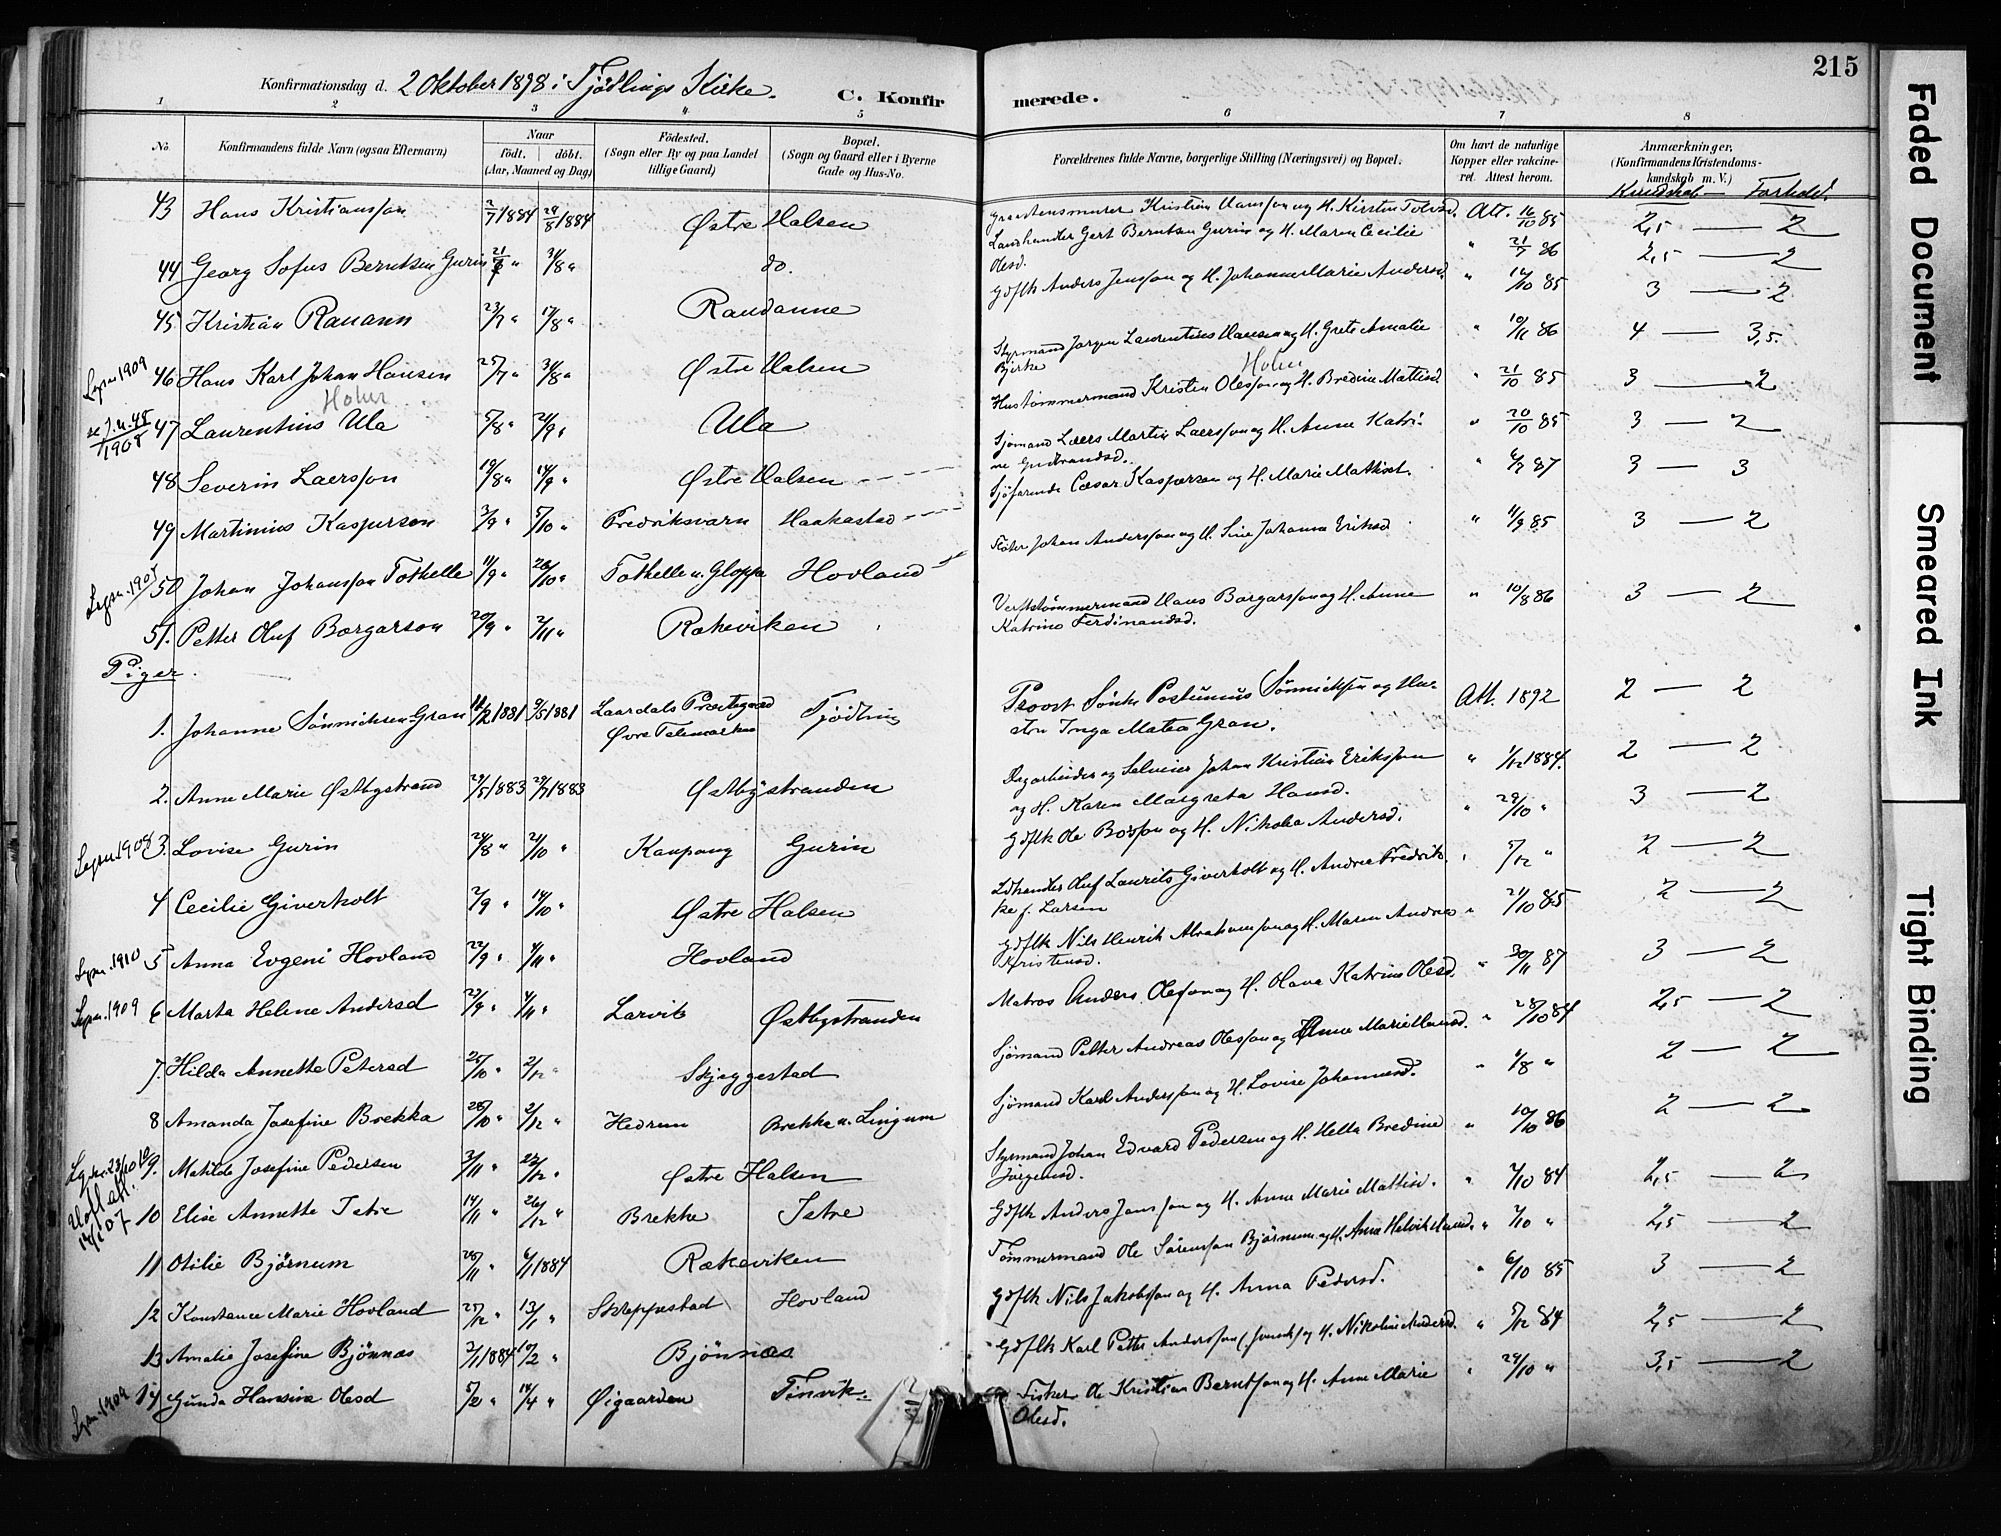 215
Konfirmationsdag d. 2 Oktober 1898 i Tjødlings Kirke.
C. Konfirmerede.
1 2 3 4 5 6 7 8
No. Konfirmandens fulde Navn (ogsaa Efternavn) Naar født. døbt. (Aar, Maaned og Dag) Fødested. (Sogn eller By og paa Landet tillige Gaard) Bopæl. (Sogn og Gaard eller i Byerne Gade og Hus-No. Forældrenes fulde Navne, borgerlige Stilling (Næringsvei) og Bopæl. Om havt de naturlige Kopper eller vakcineret. Attest herom. Anmærkninger, (Konfirmandens Kristendomskundskab m. V.)
Kundskab — Forhold.
43 Hans Kristiansson 2/7 1884 24/8 1884 Østre Halsen Graastensmurer Kristian Hansson og H. Kirsten Tolvsd. Att. 16/10 85 2,5 — 2
44 Georg Sofus Berntsen Gurin 21/7 " 31/8 " do. Landhandler Gert Berntsen Gurin og H. Maren Cecilie Olesd. " 21/7 86 2,5 — 2
45 Kristian Rauann 23/7 " 17/8 " Raudanne Gdflk Anders Jensson og H. Johanne Marie Andersd. " 14/10 85 3 — 2
Legsn 1909 46 Hans Karl Johan Hansen 25/7 " 31/8 " Østre Halsen Styrmand Jørgen Laurentius Hansen og H. Grete Amalie Bjerke " 10/11 86 4 — 3,5.
Holm
se J. n. 48/1908 47 Laurentius Ula 5/8 " 21/9 " Ula Hustømmermand Kristen Olesson og H. Bredine Mattisd. " 21/10 85 3 — 2
Holm
48 Severin Laersson 19/8 " 14/9 " Østre Halsen Sjømand Laers Martin Laersson og H. Anne Katrine Gudbrandsd. " 20/10 85 3 — 2
49 Martinius Kasperson 3/9 " 5/10 " Fredriksværn Haakastad Sjøfarende Cæsar Kaspersen og H. Marie Mattisd. " 6/7 87 3 — 3
Legsn. 1905 50 Johan Johansson Tothelle 11/9 " 26/10 " Tothelle u. Gloppe Hovland Fløter Johan Andersson og H. Sine Johanna Eriksd " 11/9 85 3 — 2
51. Petter Oluf Borgarson 20/9 " 2/11 " Rækeviken Verftstømmermand Hans Borgarsson og H. Anne Katrine Ferdinandsd. " 10/8 86 3 — 2
Piger.
1. Johanne Sønnichsen Gran 11/2 1881 3/5 1881 Laardals Prestegaard Øvre Telemarken Tjødling Provst Sønke Postumus Sønnichsen og Hustru Inga Matea Gran. Att. 1892 2 — 2
2. Anne Marie Østbystrand 29/5 1883 29/7 1883 Østbystranden Dagarbeider og Selveier Johan Kristian Eriksson og H. Karen Margreta Hansd. " 1/12 1884. 2 — 2
Legsn 1908 3. Lovise Gurin 24/8 " 21/10 " Kaupang Gurin Gdflk Ole Bosson og H. Nikolea Andersd. " 29/10 " 3 — 2
4 Cecilie Giverholt 2/9 " 14/10 " Østre Halsen Ldhandler Oluf Laurits Giverholt og H. Andrea Fredrikke f. Larsen " 5/12 " 2 — 2
Legsn. 1910 5 Anna Evgeni Hovland 22/9 " 4/11 " Hovland Gdflk Nils Henrik Abrahamson og H. Maren Andrea Kristensd. " 21/10 85 2 — 2
Legsn. 1909 6 Marta Helene Andersd 23/9 " 4/11 " Larvik Østbystranden Matros Anders Olesson og H. Olava Katrine Olesd. " 30/11 87 3 — 2
7. Hilda Annette Petersd 25/10 " 2/12 " Skjeggestad Sjømand Petter Andreas Olesson og H. Anne Marie Hansd. " 28/10 84 2,5 — 2
8 Amanda Josefine Brekka 28/10 " 2/12 " Hedrum Brekke u. Lingum Sjømand Karl Andersson og H. Lovise Johannesd. " 1/8 " 2 — 2
Legsn. 23/10 19 9. Matilde Josefine Pedersen 3/11 " 23/12 " Østre Halsen Styrmand Johan Edvard Pedersen og H. Hella Bredine Jørgensd. " 10/10 86 2 — 2
10 Elise Annette Istre 14/11 " 26/12 " Brekke Istre Gdflk Anders Jansson og H. Anne Marie Mattisd. " 7/10 84 2,5 — 2
11 Otilie Bjørnum 28/11 " 6/1 1884 Rækeviken Tømmermand Ole Sørensson Bjørnum og H. Anne Helvik Hansd. " 7/10 " 2,5 — 2
12 Konstance Marie Hovland 25/12 " 13/1 " Skreppestad Hovland Gdflk Nils Jakobsson og H. Anna Pedersd. " 6/10 85 3 — 2
13 Amalie Josefine Bjønnæs 2/1 1884 10/2 " Bjønnæs Gdflk Karl Petter Andersson (svensk) og H. Nikoline Andersd. " 5/12 84 2,5 — 2
Legsn. 1909 14. Gunda Hansine Olesd 5/2 " 14/4 " Øigaarden Tinvik. Fisker Ole Kristian Berntsson og H. Anne Marie Olesd. " 29/10 " 3,5 — 2
Faded Document
Smeared Ink
Tight Binding